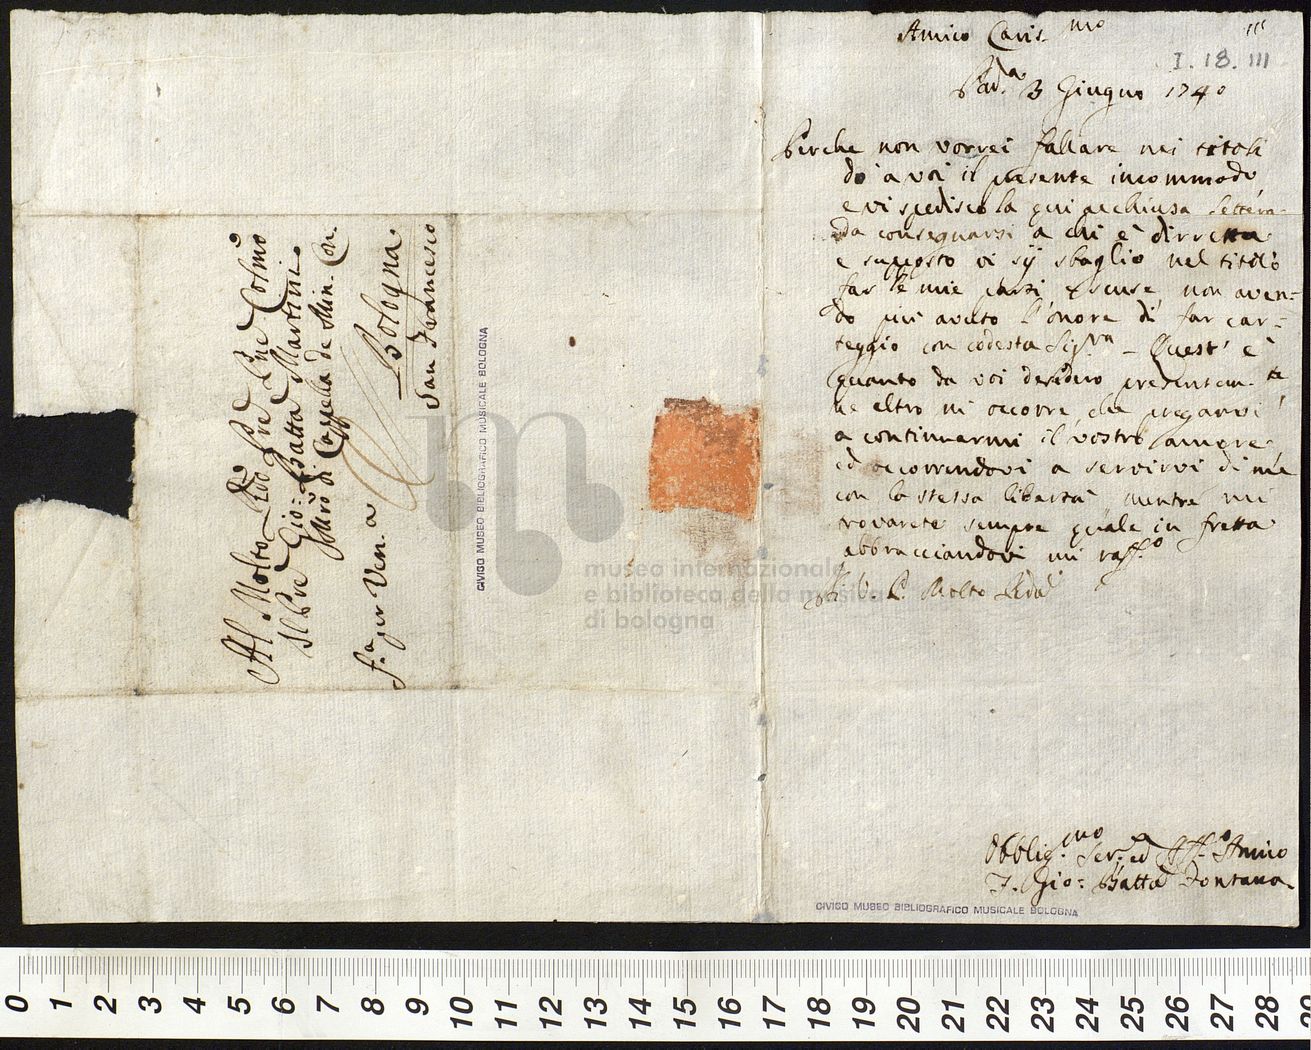 Al Molto Rdo Pre Pne Colmo
Il Pre Gio: Batta Martini
Mro di Cappella de Min. Con.
Fa per Ven.a
Bologna
San Francesco
CIVICO MUSEO BIBLIOGRAFICO MUSICALE BOLOGNA
museo internazionale
e biblioteca della musica
di bologna
Amico Caris.mo
I. 18. 111
Pad.a 3 Giugno 1740
Perche non vorrei fallare nei titoli
do a voi il presente incommodo
e vi spedisco la qui acchiusa lettera
da consegnarsi a chi è dirretta
e supposto vi sij sbaglio nel titolo
far le mie parti e scuse non aven-
do più avuto l'onore di far car-
teggio con codesta Sig.ra – Quest' è
quanto da voi desidero presentem.te
ne altro mi occorre che pregarvi
a continuarmi il vostro amore
ed occorrendovi a servirvi di me
con la stessa libertà mentre mi
trovarete sempre quale in fretta
abbracciandovi mi raff.o
Di V. P. Molto Rda
Obblig.mo Ser. ed Aff.o Amico
F. Gio: Batta Fontana
CIVICO MUSEO BIBLIOGRAFICO MUSICALE BOLOGNA
0 1 2 3 4 5 6 7 8 9 10 11 12 13 14 15 16 17 18 19 20 21 22 23 24 25 26 27 28